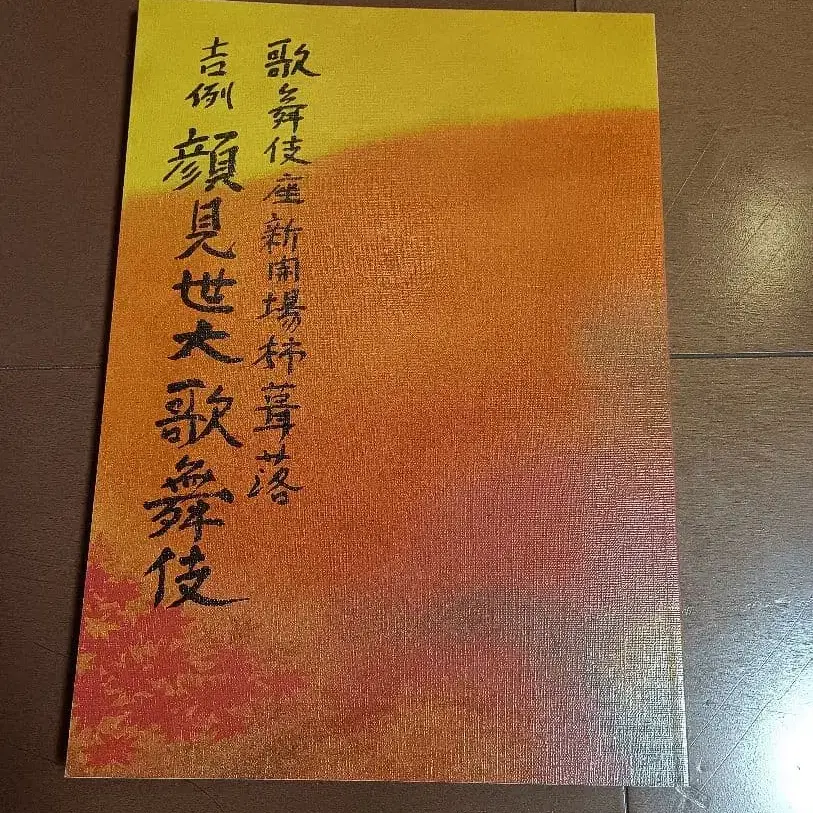 歌舞伎座新開場杮葺落
吉例 顔見世大歌舞伎